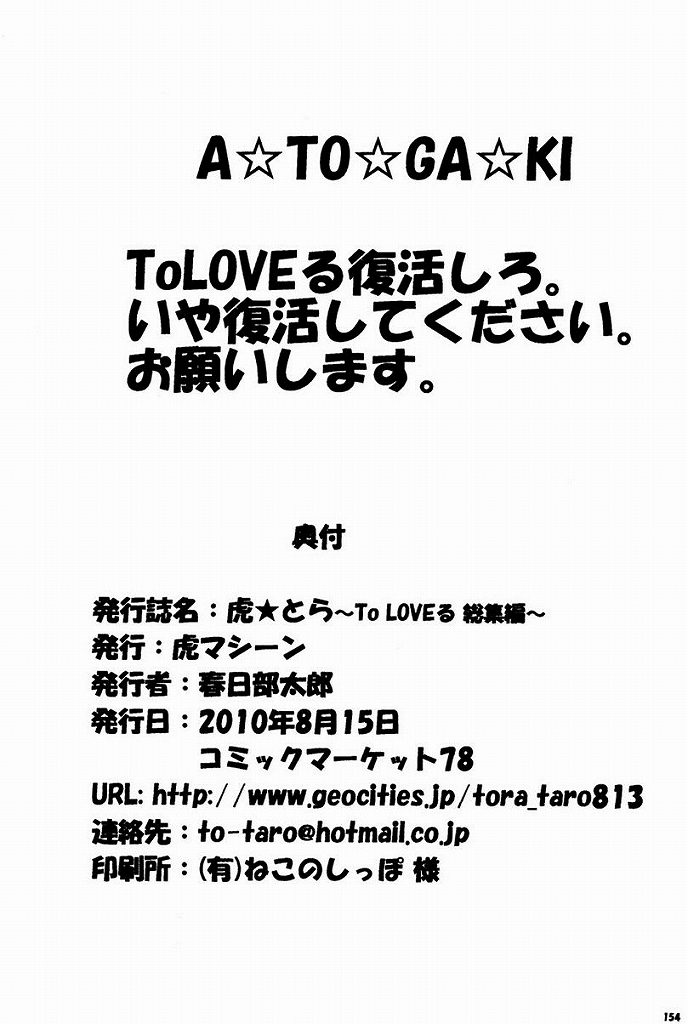 A☆TO☆GA☆KI
ToLOVEる復活しろ。
いや復活してください。
お願いします。
奥付
発行誌名：虎★とら～To LOVEる 総集編～
発行：虎マシーン
発行者：春日部太郎
発行日：2010年8月15日
コミックマーケット78
URL: http://www.geocities.jp/tora_taro813
連絡先：to-taro@hotmail.co.jp
印刷所：(有)ねこのしっぽ 様
154